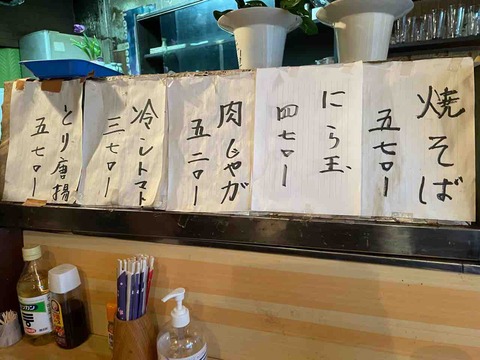 焼そば
五七〇ー
にら玉
四七〇ー
肉じゃが
五二〇ー
冷しトマト
三七〇ー
とり唐揚
五七〇ー